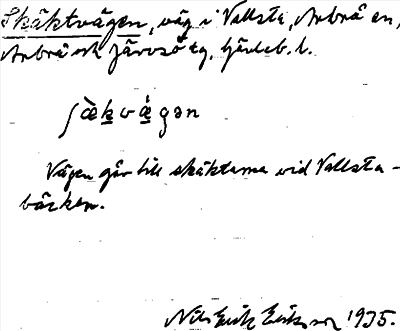 Skäktvägen, väg i Vallsta, Arbrå sn,
Arbrå och Järvsö tg, Gävleb. l.
ʃæ̀kvæ̗gən
Vägen går till skäktarna vid Vallsta-
bäcken.
Nils Erik Eriksson 1935.